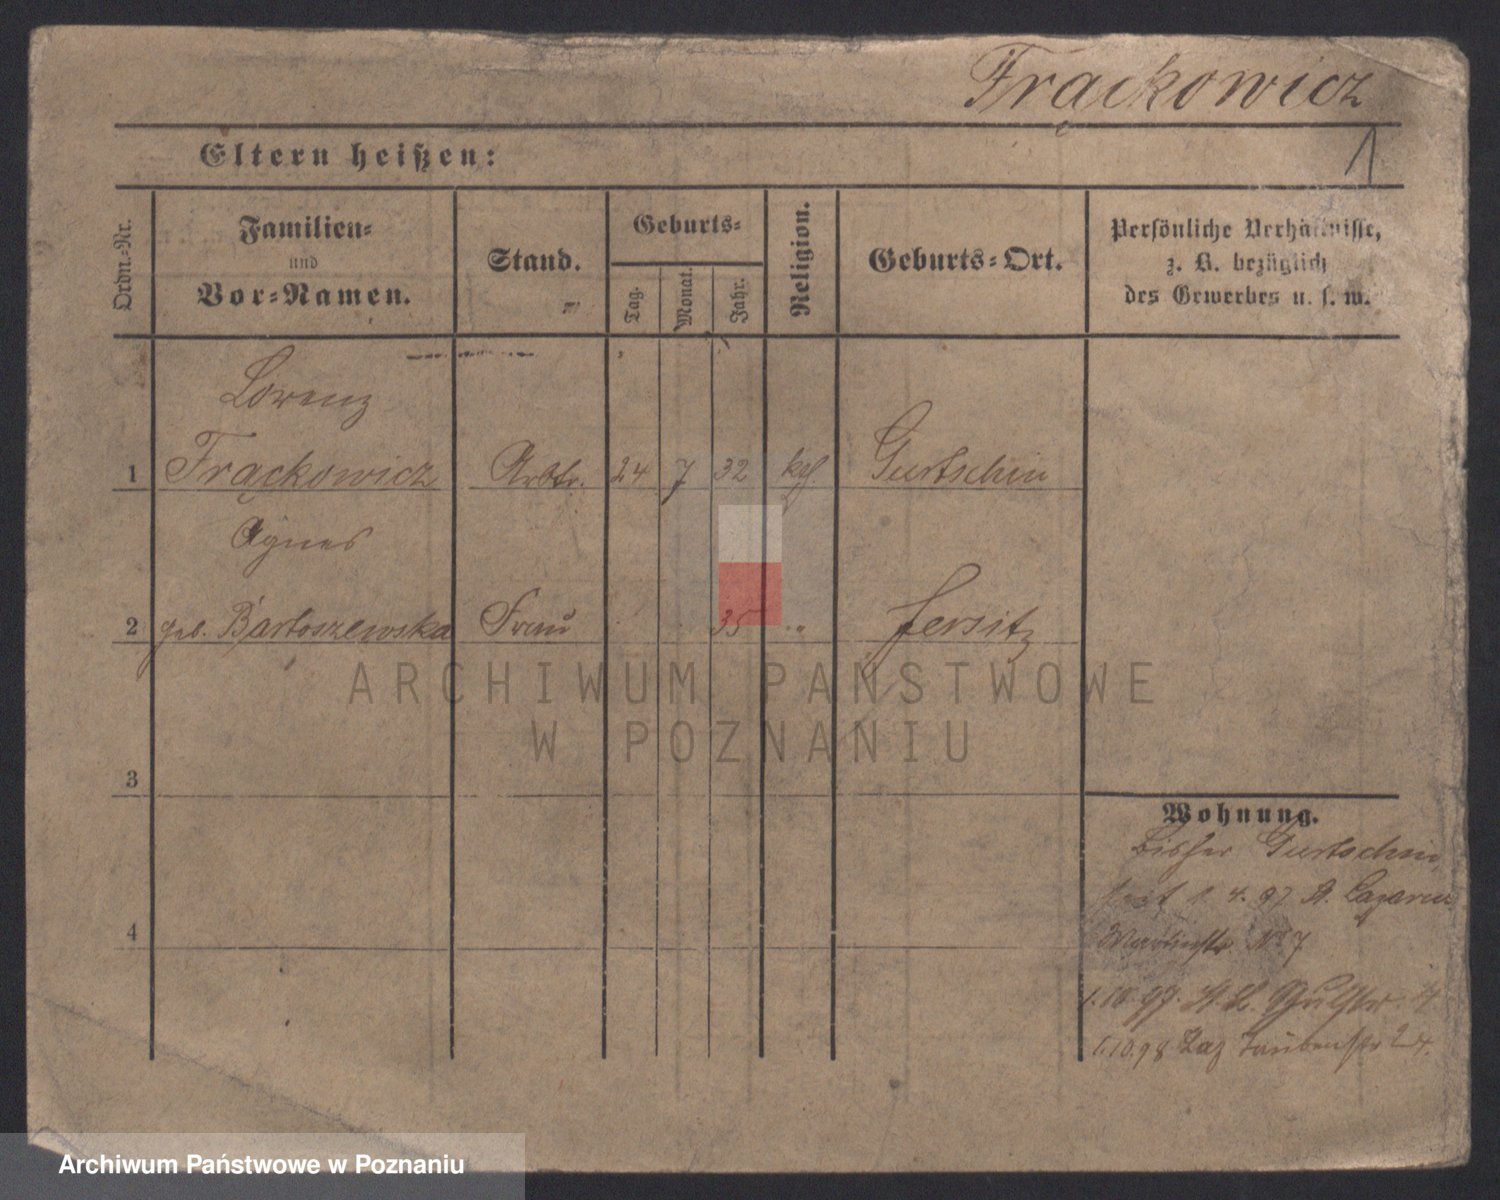 Frąckowicz
1
Eltern heißen:
Ordn.-Nr.
Familien-
und
Vor-Namen.
Stand.
Geburts-
Tag.
Monat.
Jahr.
Religion.
Geburts-Ort.
Persönliche Verhältnisse,
z. B. bezüglich
des Gewerbes u. s. w.
Lorenz
1 Frąckowicz Arbtr. 24 7 32 kath. Gurtschin
Agnes
2 geb. Bartoszewska Frau 35 " Jersitz
3
4
Wohnung.
bisher Gurtschin
seit 1. 4. 97 St. Lazarus
Martinstr. No 7
1.10.97. St. L.
1.10.98 Laz Taubenstr
ARCHIWUM PAŃSTWOWE
W POZNANIU
Archiwum Państwowe w Poznaniu